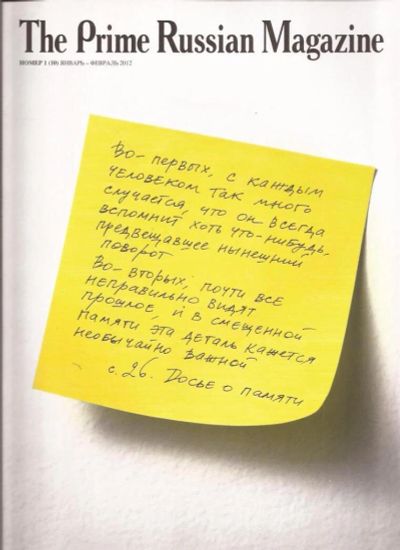 The Prime Russian Magazine
НОМЕР 1 (10) ЯНВАРЬ – ФЕВРАЛЬ 2012
Во-первых, с каждым
человеком так много
случается, что он всегда
вспомнит хоть что-нибудь,
предвещавшее нынешний
поворот
Во-вторых, почти все
неправильно видят
прошлое, и в смещенной
памяти эта деталь кажется
необычайно важной
с. 26. Досье о памяти